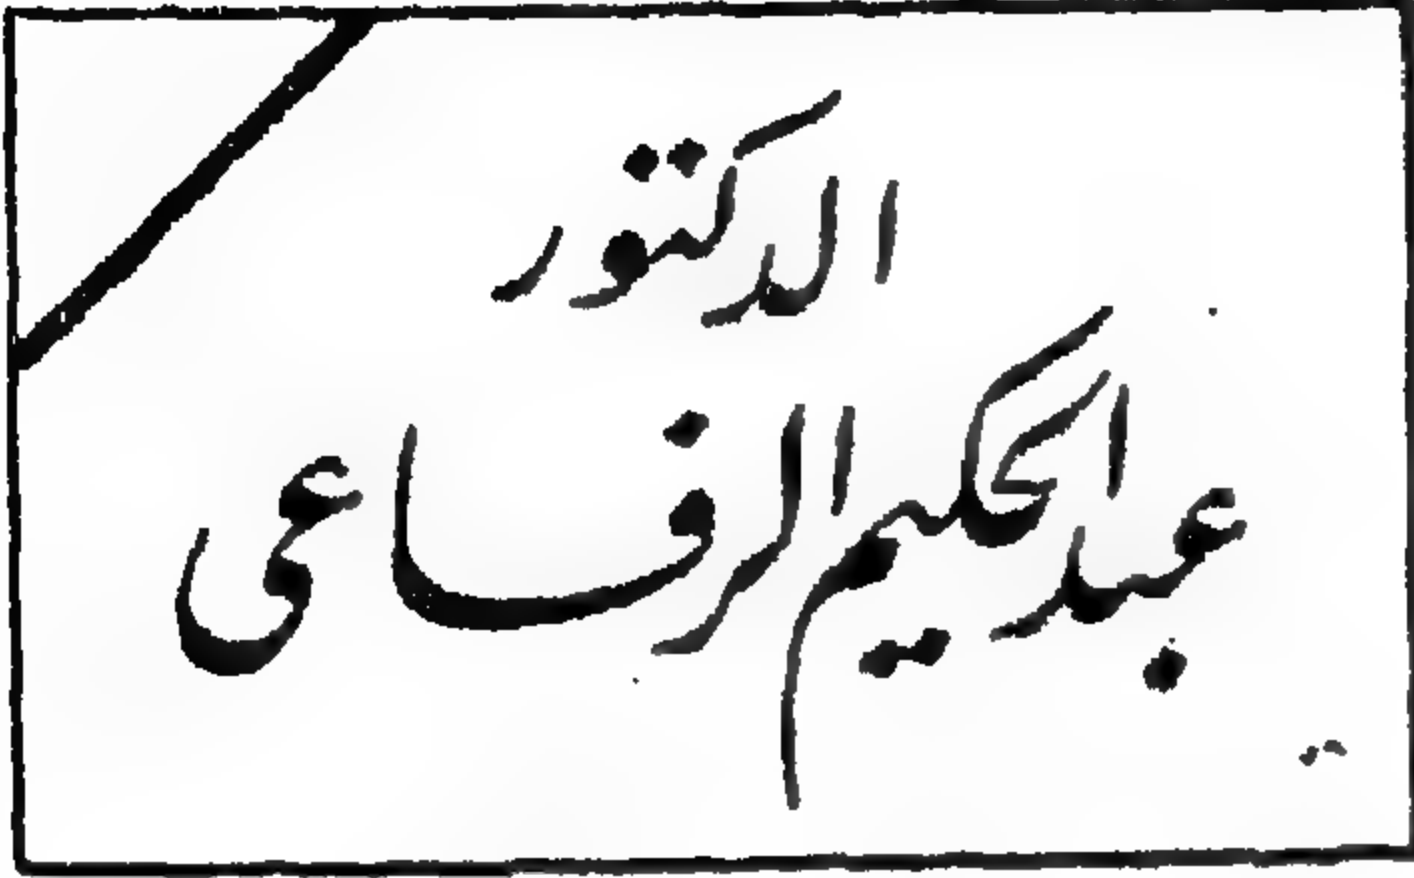 الدكتور
عبد الحكيم الرفاعى